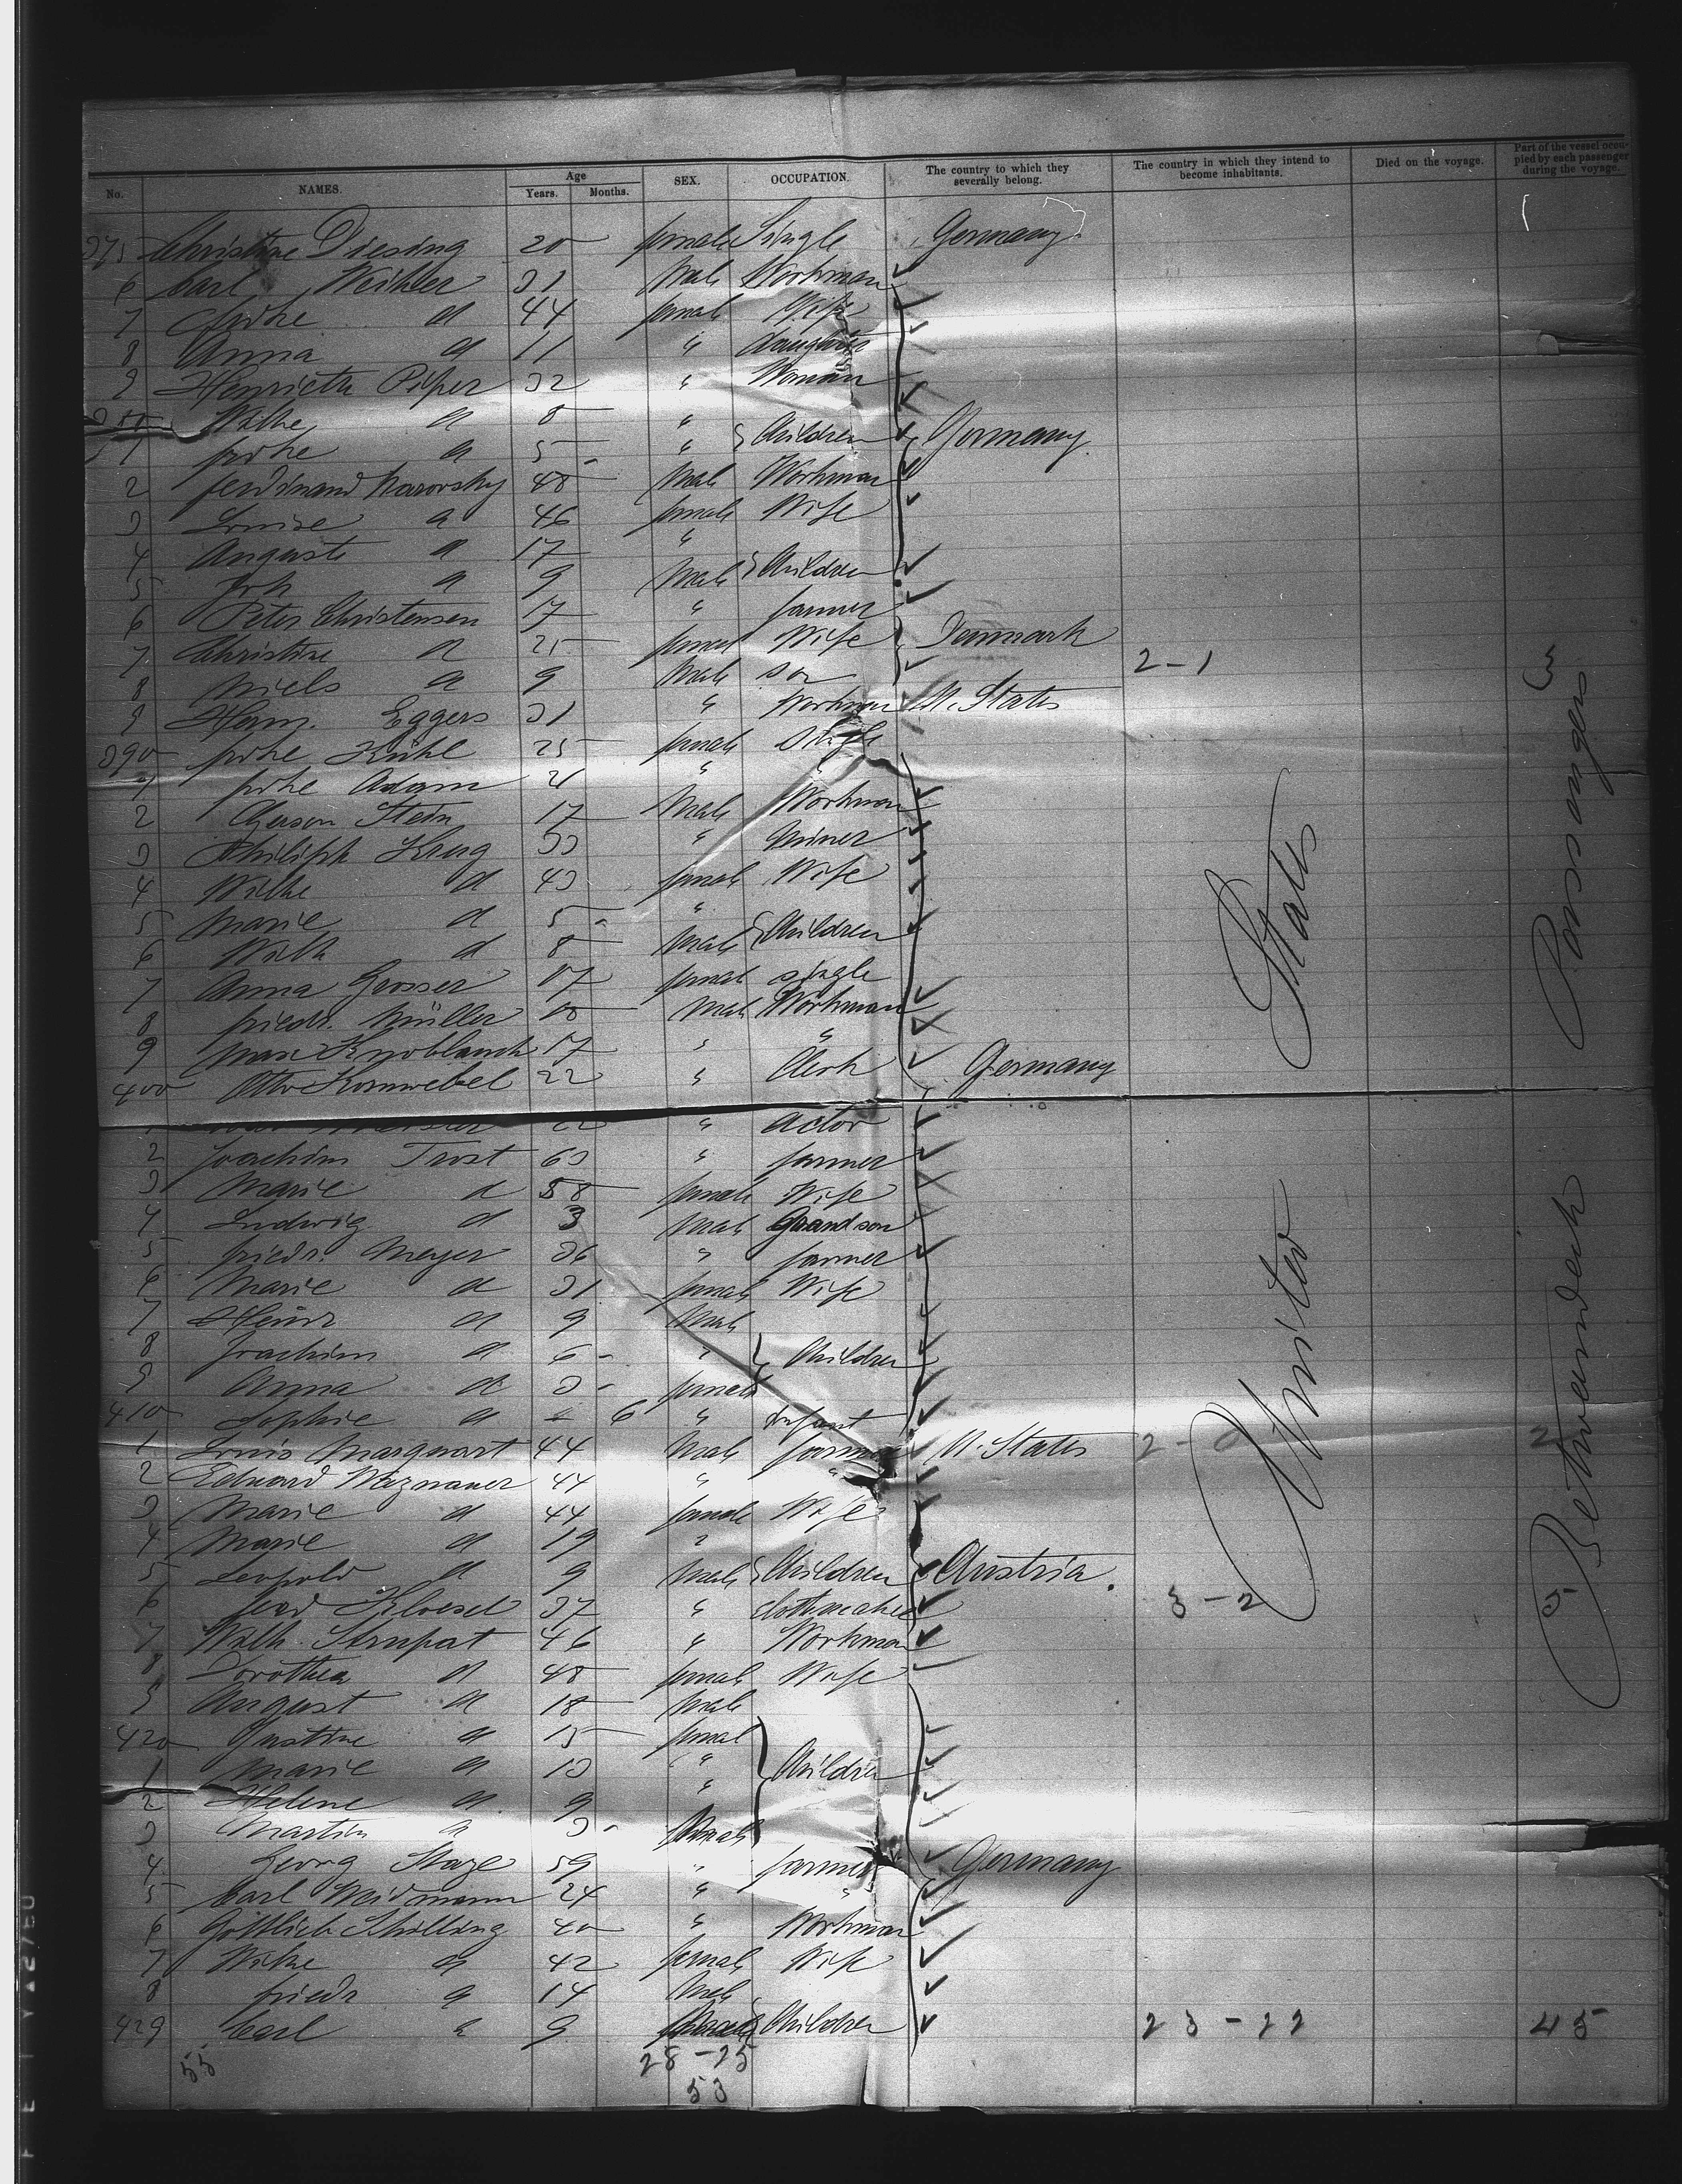 No. NAMES. Age Years. Months. SEX. OCCUPATION. The country to which they severally belong. The country in which they intend to become inhabitants. Died on the voyage. Part of the vessel occupied by each passenger during the voyage.
375 Christine Diesing 20 female Single Germany
6 Carl 31 Male Workman
7 d 44 female Wife
8 Anna d 11 " daughter
9 Henriette Piper 32 " Woman
380 Wilhe d 8 "
1 frdke d 5 " Children Germany
2 ferdinand 48 Male Workman
3 Louise d 46 female Wife
4 Auguste d 17 "
5 Joh d 9 Male Children
6 Peter Christensen 17 " farmer
7 Christine d 25 female Wife Denmark
8 Niels d 9 Male son 2-1
9 Herm. Eggers 31 " Workman U. States
390 frdke Kühl 25 female Single
1 frdke Adam 21 " "
2 Gerson Stein 17 Male Workman
3 Philipp Krug 33 " Miner
4 Wilhe d 43 female Wife
5 Marie d 5 "
6 Wilh d 8 Male Children
7 Anna Grosser 17 female single
8 friedr. Müller 18 Male Workman
9 Max Knoblauch 17 " "
400 Otto Kornwebel 22 " Clerk Germany
22 " Actor
2 Joachim Trost 63 " farmer
3 Marie d 58 female Wife
4 Ludwig d 3 Male Grandson
5 friedr. Meyer 36 " farmer
6 Marie d 31 female Wife
7 Heinr d 9 Male
8 Joachim d 6 " Children
9 Anna d 3 female
410 Sophie d 6 " Infant
1 Louis Marquart 44 Male farmer U. States 2-0 2
2 Eduard 44 " "
3 Marie d 44 female Wife
4 Marie d 19 "
5 Leopold d 9 Male Children Austria.
6 ferd Kloesel 37 " clothmaker 3-2
7 Wilh. Strupat 46 " Workman
8 Dorothea d 48 female Wife
9 August d 18 Male
420 Justine d 15 female
1 Marie d 13 " Children
2 Helene d 9 "
3 Martin d 3 Male
4 Georg 59 " farmer Germany
5 Carl Weidmann 24 " "
6 Gottlieb Schilling 40 " Workman
7 Wilhe d 42 female Wife
8 friedr d 14 Male
429 Carl d 9 Male Children 23-22 45
55 28-25
53
United States
Betweendeck Passengers